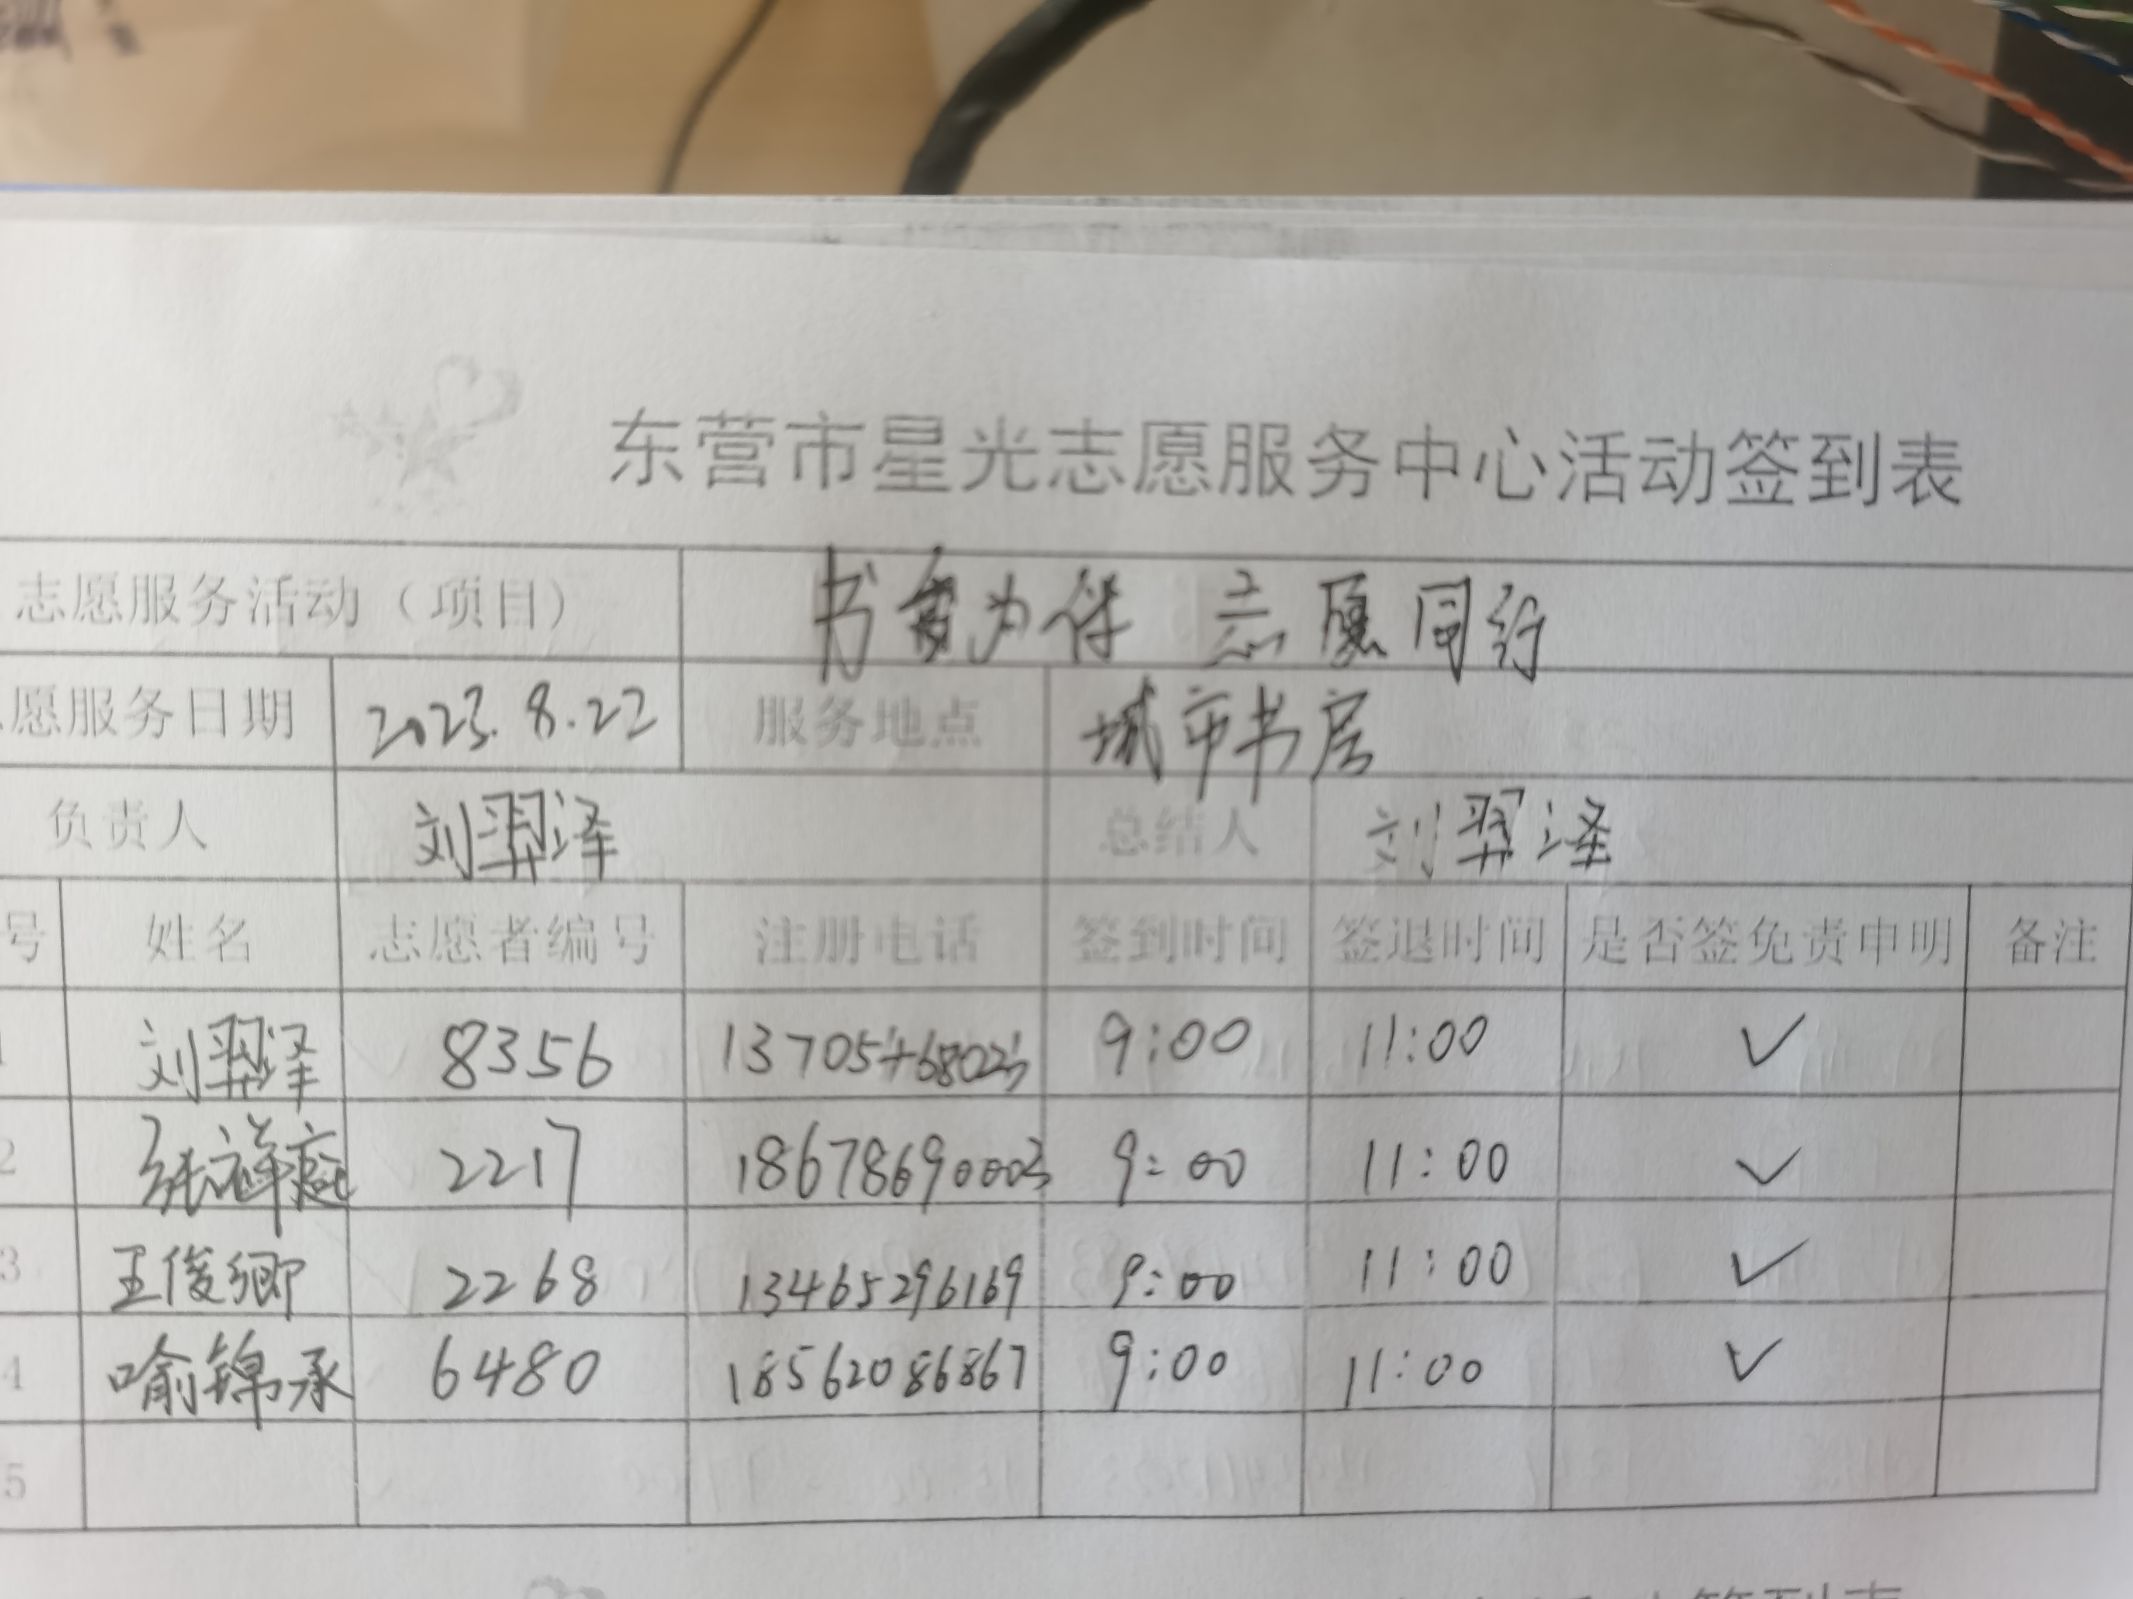 东营市星光志愿服务中心活动签到表
志愿服务活动（项目） 书香为伴 志愿同行
愿服务日期 2023.8.22 服务地点 城市书房
负责人 刘羿泽 总结人 刘羿泽
号 姓名 志愿者编号 注册电话 签到时间 签退时间 是否签免责申明 备注
1 刘羿泽 8356 9:00 11:00 ✓
2 张祥庭 2217 18678690003 9:00 11:00 ✓
3 王俊卿 2268 13465296169 9:00 11:00 ✓
4 喻锦承 6480 18562086867 9:00 11:00 ✓
5